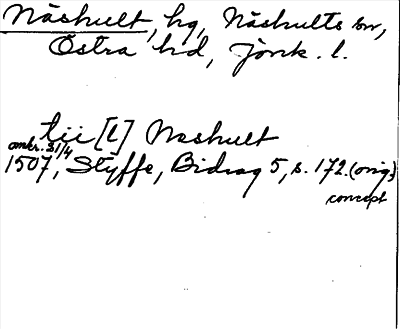 Näshult, hg, Näshults sn,
Östra hd, Jönk. l.
tii [l] Nashult
omkr. 31/4
1507, Styffe, Bidrag 5, s. 172. (orig.)
concept